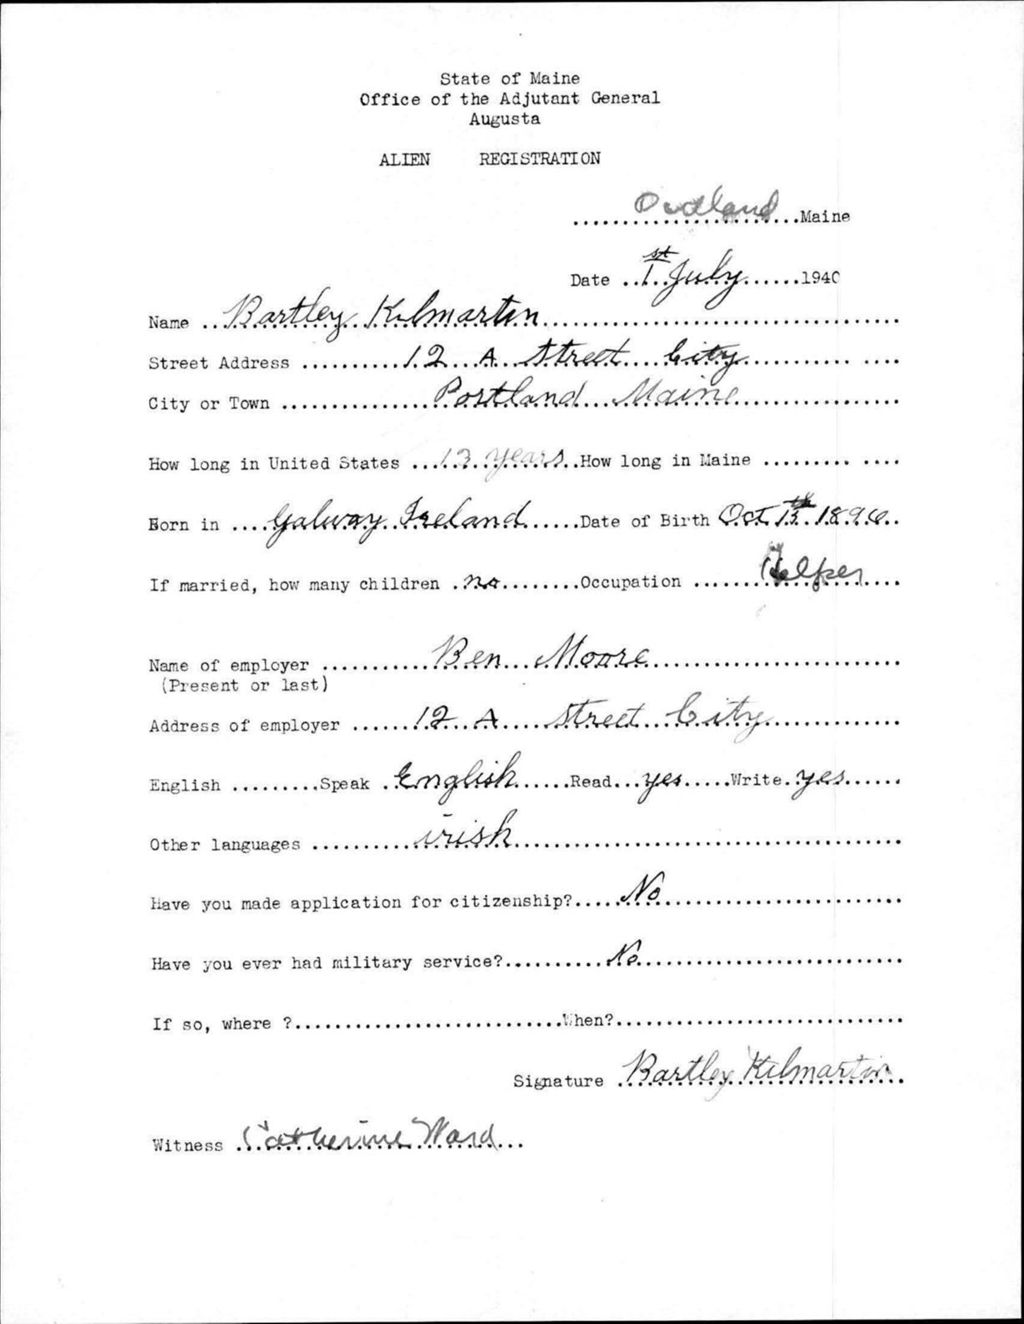 State of Maine
Office of the Adjutant General
Augusta
ALIEN REGISTRATION
Portland Maine
Date 1st July 1940
Name Bartley Kilmartin
Street Address 12 A Street City
City or Town Portland Maine
How long in United States 13 years How long in Maine
Born in Galway Ireland Date of Birth Oct 13th 1896
If married, how many children no Occupation Helper
Name of employer Ben Moore
(Present or last)
Address of employer 12 A Street City
English Speak English Read yes Write yes
Other languages irish
Have you made application for citizenship? No
Have you ever had military service? No
If so, where ? When?
Signature Bartley Kilmartin
Witness Catherine Ward